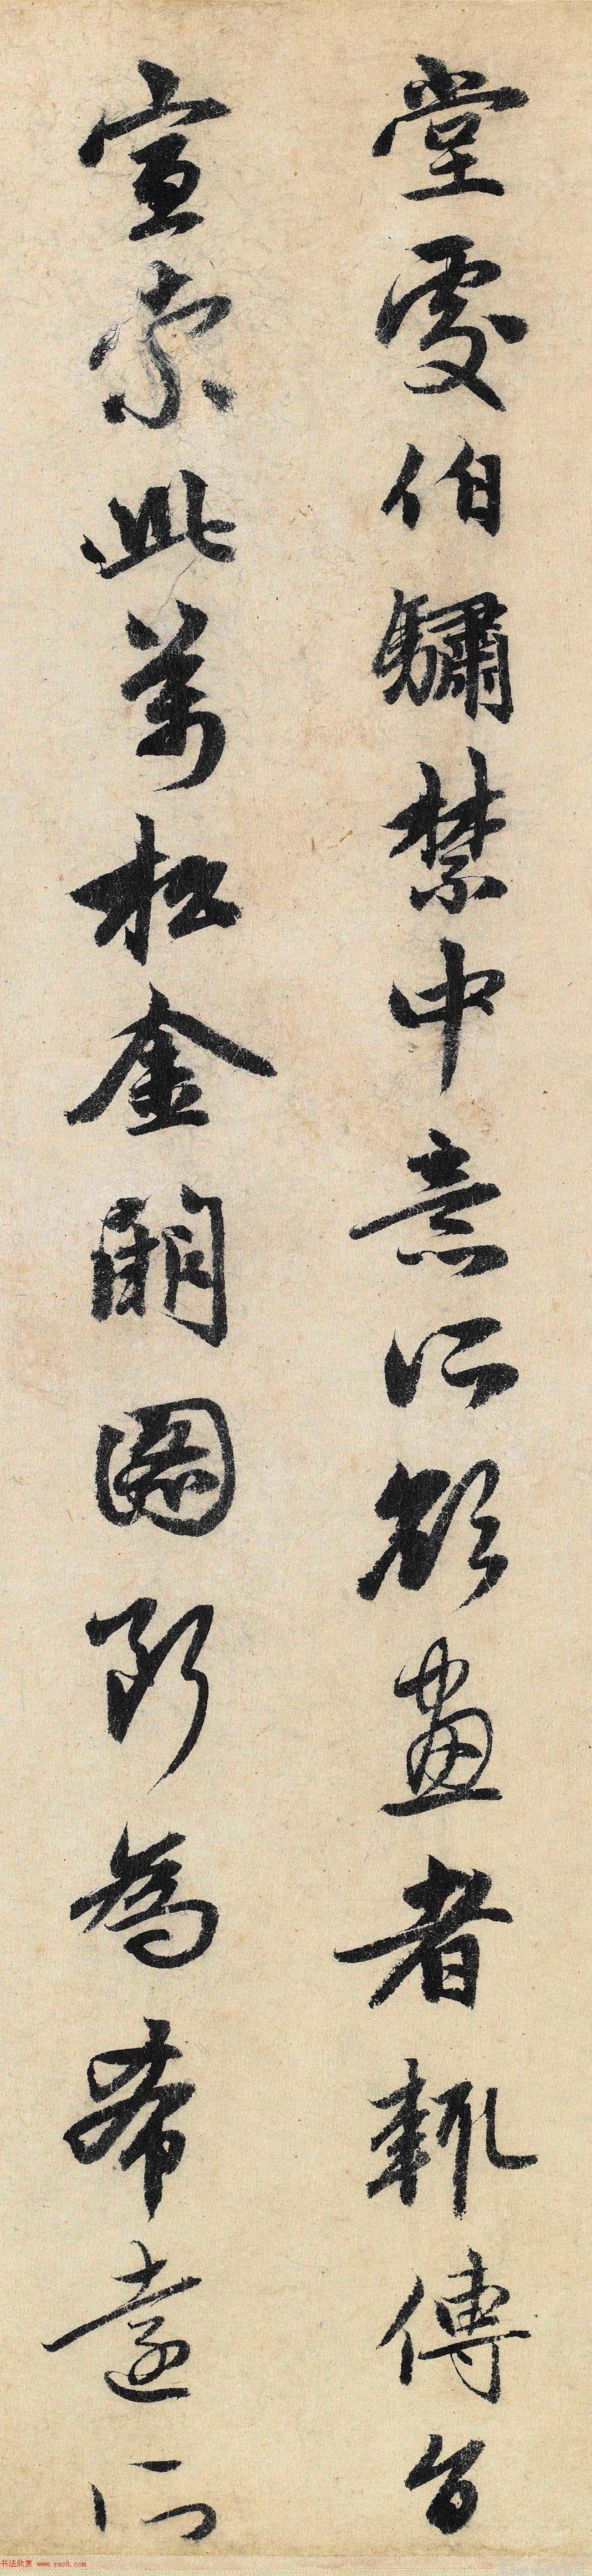 堂處伯驌禁中意所欲畫者輒傳旨
宣索此萬松金闕圖所為希遠所
书法欣赏 www.yac8.com